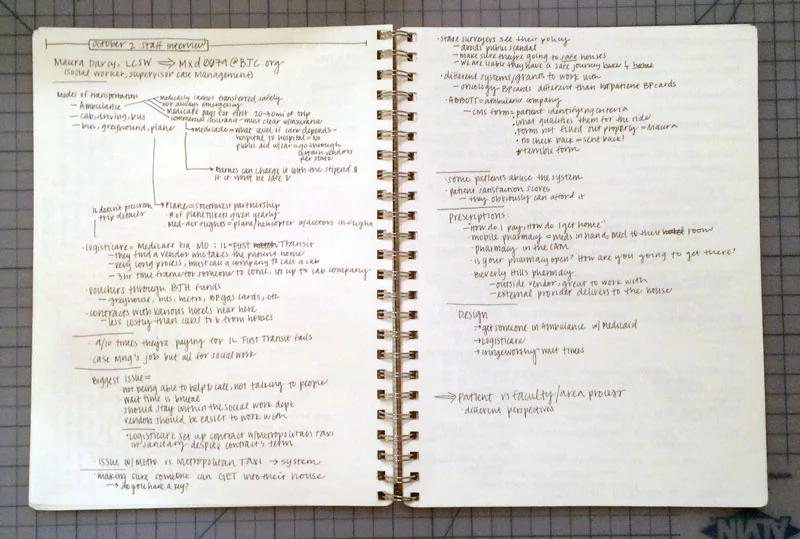 October 2 Staff Interview
Maura Darcy, LCSW ⇒ Mxd0979@BJC.org
(social worker, supervisor case Management)
Modes of transportation
- Ambulance
- cab, driving, bus
- bus, greyhound, plane
medically cannot transferred safely
not always emergency
Medicare pays for first 20-40mi of trip
commercial insurance - must clear w/insurance
medicade = what level of care depends -
hospital to hospital = NO
public aid w/car = go through
certain vendors
per state
Barnes can charge it with the stipend $
if it won't be safe
Plane = southwest partnership
# of plane tickets given yearly
Med-air-flights = plane/helicopter w/doctors in flight
IL doesn't
trip details
· logisticare = Medicare via MO : IL = First Transit
- they find a vendor who takes the patient home
- very long process, must call a company to call a cab
- 3 hr time frame for someone to come, its up to cab company
· vouchers through BJH funds
- greyhouse, bus, metro, BP gas cards, etc
· contracts with various hotels near here
- less costly than cabs to & from houses
· 9/10 times they're paying for IL First Transit fails
· case mng's job but all for social work
Biggest issue =
· not being able to help & call, not talking to people
· wait time is brutal
· should stay within the social work dept
· vendors should be easier to work with
· Logisticare set up contract w/metropolitan taxi
in January despite contract's term
issue w/ Metro vs. Metropolitan Taxi → system
· making sure someone can GET into their house
→ do you have a key?
· state surveyers see their policy
- avoids public scandal
- make sure they're going to safe houses
- we are liable they have a safe journey back & home
· different systems/grants to work with
- oncology - BP cards different than not patient BP cards
· ABBOTS = ambulance company
- CMS form = patient identifying criteria
· what qualifies them for the ride
· Forms not filled out properly = Maura
· no check back = sent back!
* terrible form
· some patients abuse the system
· patient satisfaction scores
- they obviously can afford it
Prescriptions
· "How do I pay, How do I get home"
· mobile pharmacy = meds in hand, med to their room
· pharmacy in the CAM
· is your pharmacy open? How are you going to get there?
· Beverly Hills pharmacy
- outside vendor, great to work with
- external provider delivers to the house
Design
→ get someone in Ambulance w/ Medicaid
→ Logisticare
→ cringeworthy wait times
⇒ Patient vs faculty/area process
different perspectives
ALVIN